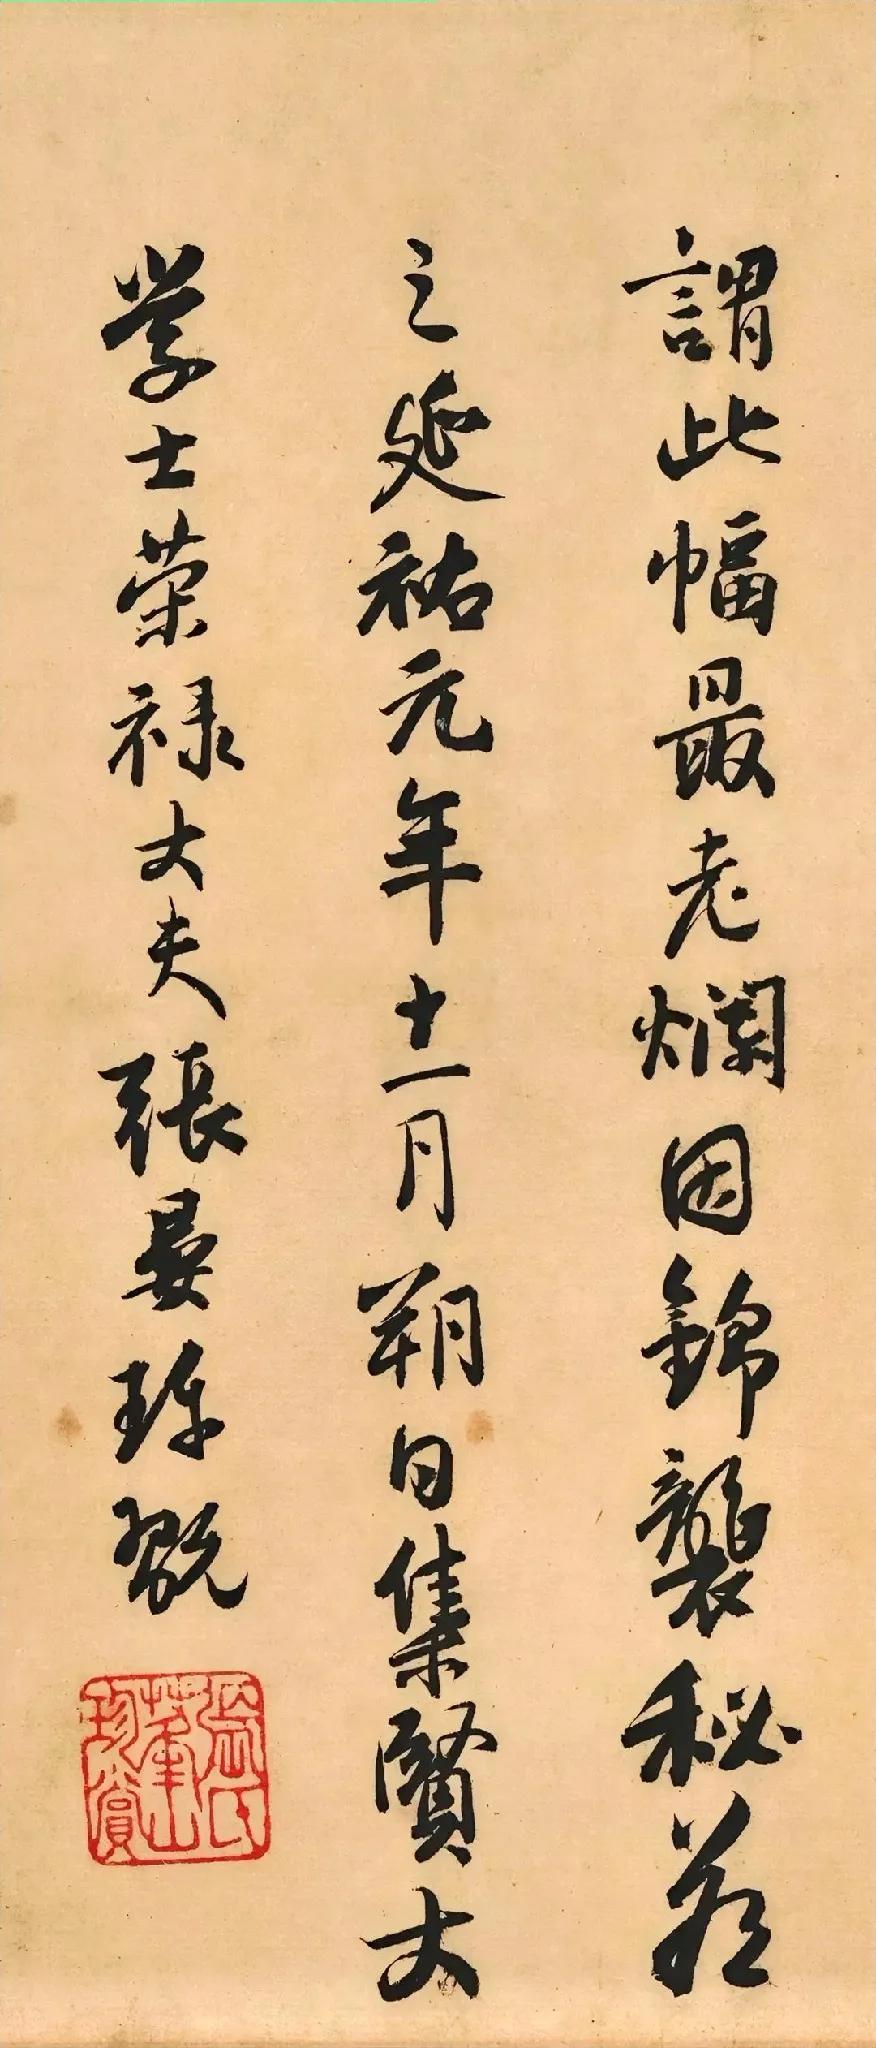 謂此幅最老爛因錦襲秘藏
之延祐元年十一月朔日集賢大
學士荣禄大夫張晏珎翫
張氏
珍賞